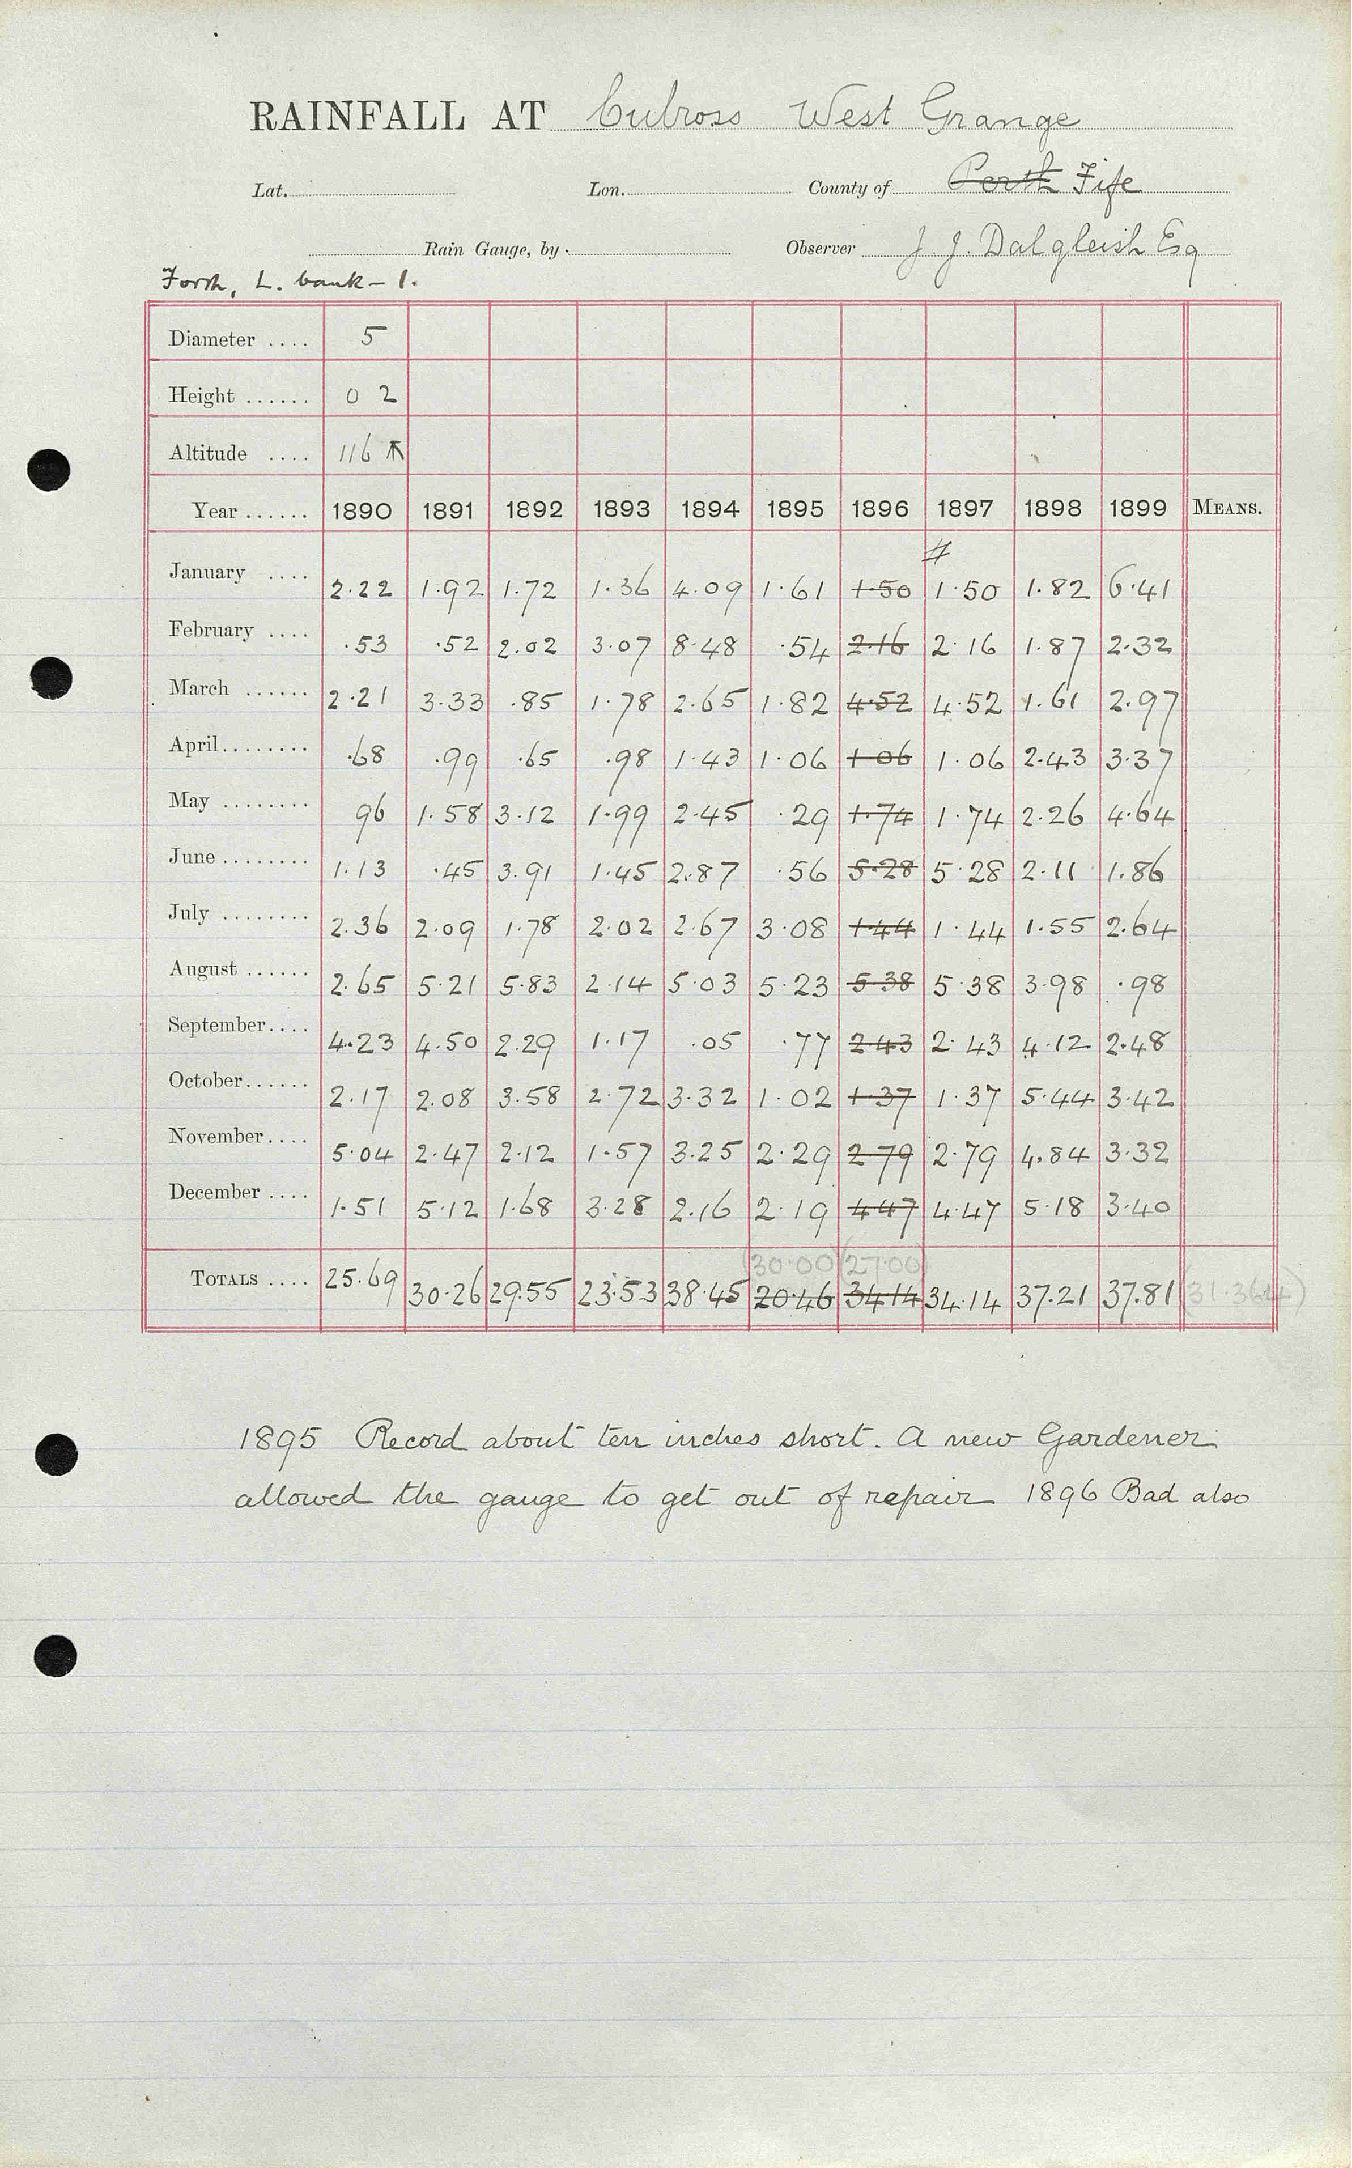 RAINFALL AT Culross West Grange
Lat. Lon. County of Perth Fife
Rain Gauge, by Observer J. J. Dalgleish Esq
Forth, L. bank - 1.
Diameter .... 5
Height ...... 0 2
Altitude .... 116
Year ...... 1890 1891 1892 1893 1894 1895 1896 1897 1898 1899 MEANS.
#
January .... 2.22 1.92 1.72 1.36 4.09 1.61 1.50 1.50 1.82 6.41
February .... .53 .52 2.02 3.07 8.48 .54 2.16 2.16 1.87 2.32
March ...... 2.21 3.33 .85 1.78 2.65 1.82 4.52 4.52 1.61 2.97
April........ .68 .99 .65 .98 1.43 1.06 1.06 1.06 2.43 3.37
May ........ 96 1.58 3.12 1.99 2.45 .29 1.74 1.74 2.26 4.64
June ........ 1.13 .45 3.91 1.45 2.87 .56 5.28 5.28 2.11 1.86
July ........ 2.36 2.09 1.78 2.02 2.67 3.08 1.44 1.44 1.55 2.64
August ...... 2.65 5.21 5.83 2.14 5.03 5.23 5.38 5.38 3.98 .98
September.... 4.23 4.50 2.29 1.17 .05 .77 2.43 2.43 4.12 2.48
October...... 2.17 2.08 3.58 2.72 3.32 1.02 1.37 1.37 5.44 3.42
November.... 5.04 2.47 2.12 1.57 3.25 2.29 2.79 2.79 4.84 3.32
December .... 1.51 5.12 1.68 3.28 2.16 2.19 4.47 4.47 5.18 3.40
(30.00) (27.00)
TOTALS .... 25.69 30.26 29.55 23.53 38.45 20.46 34.14 34.14 37.21 37.81 (31.364)
1895 Record about ten inches short. A new Gardener
allowed the gauge to get out of repair 1896 Bad also